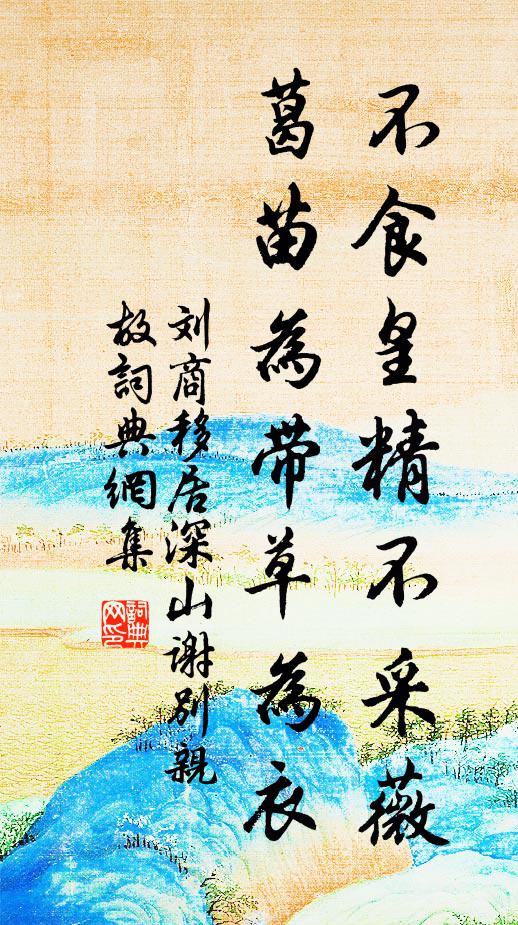 不食皇精不采薇
葛苗為带草為衣
刘商移居深山谢别親
故詞典網集
詞典
网印